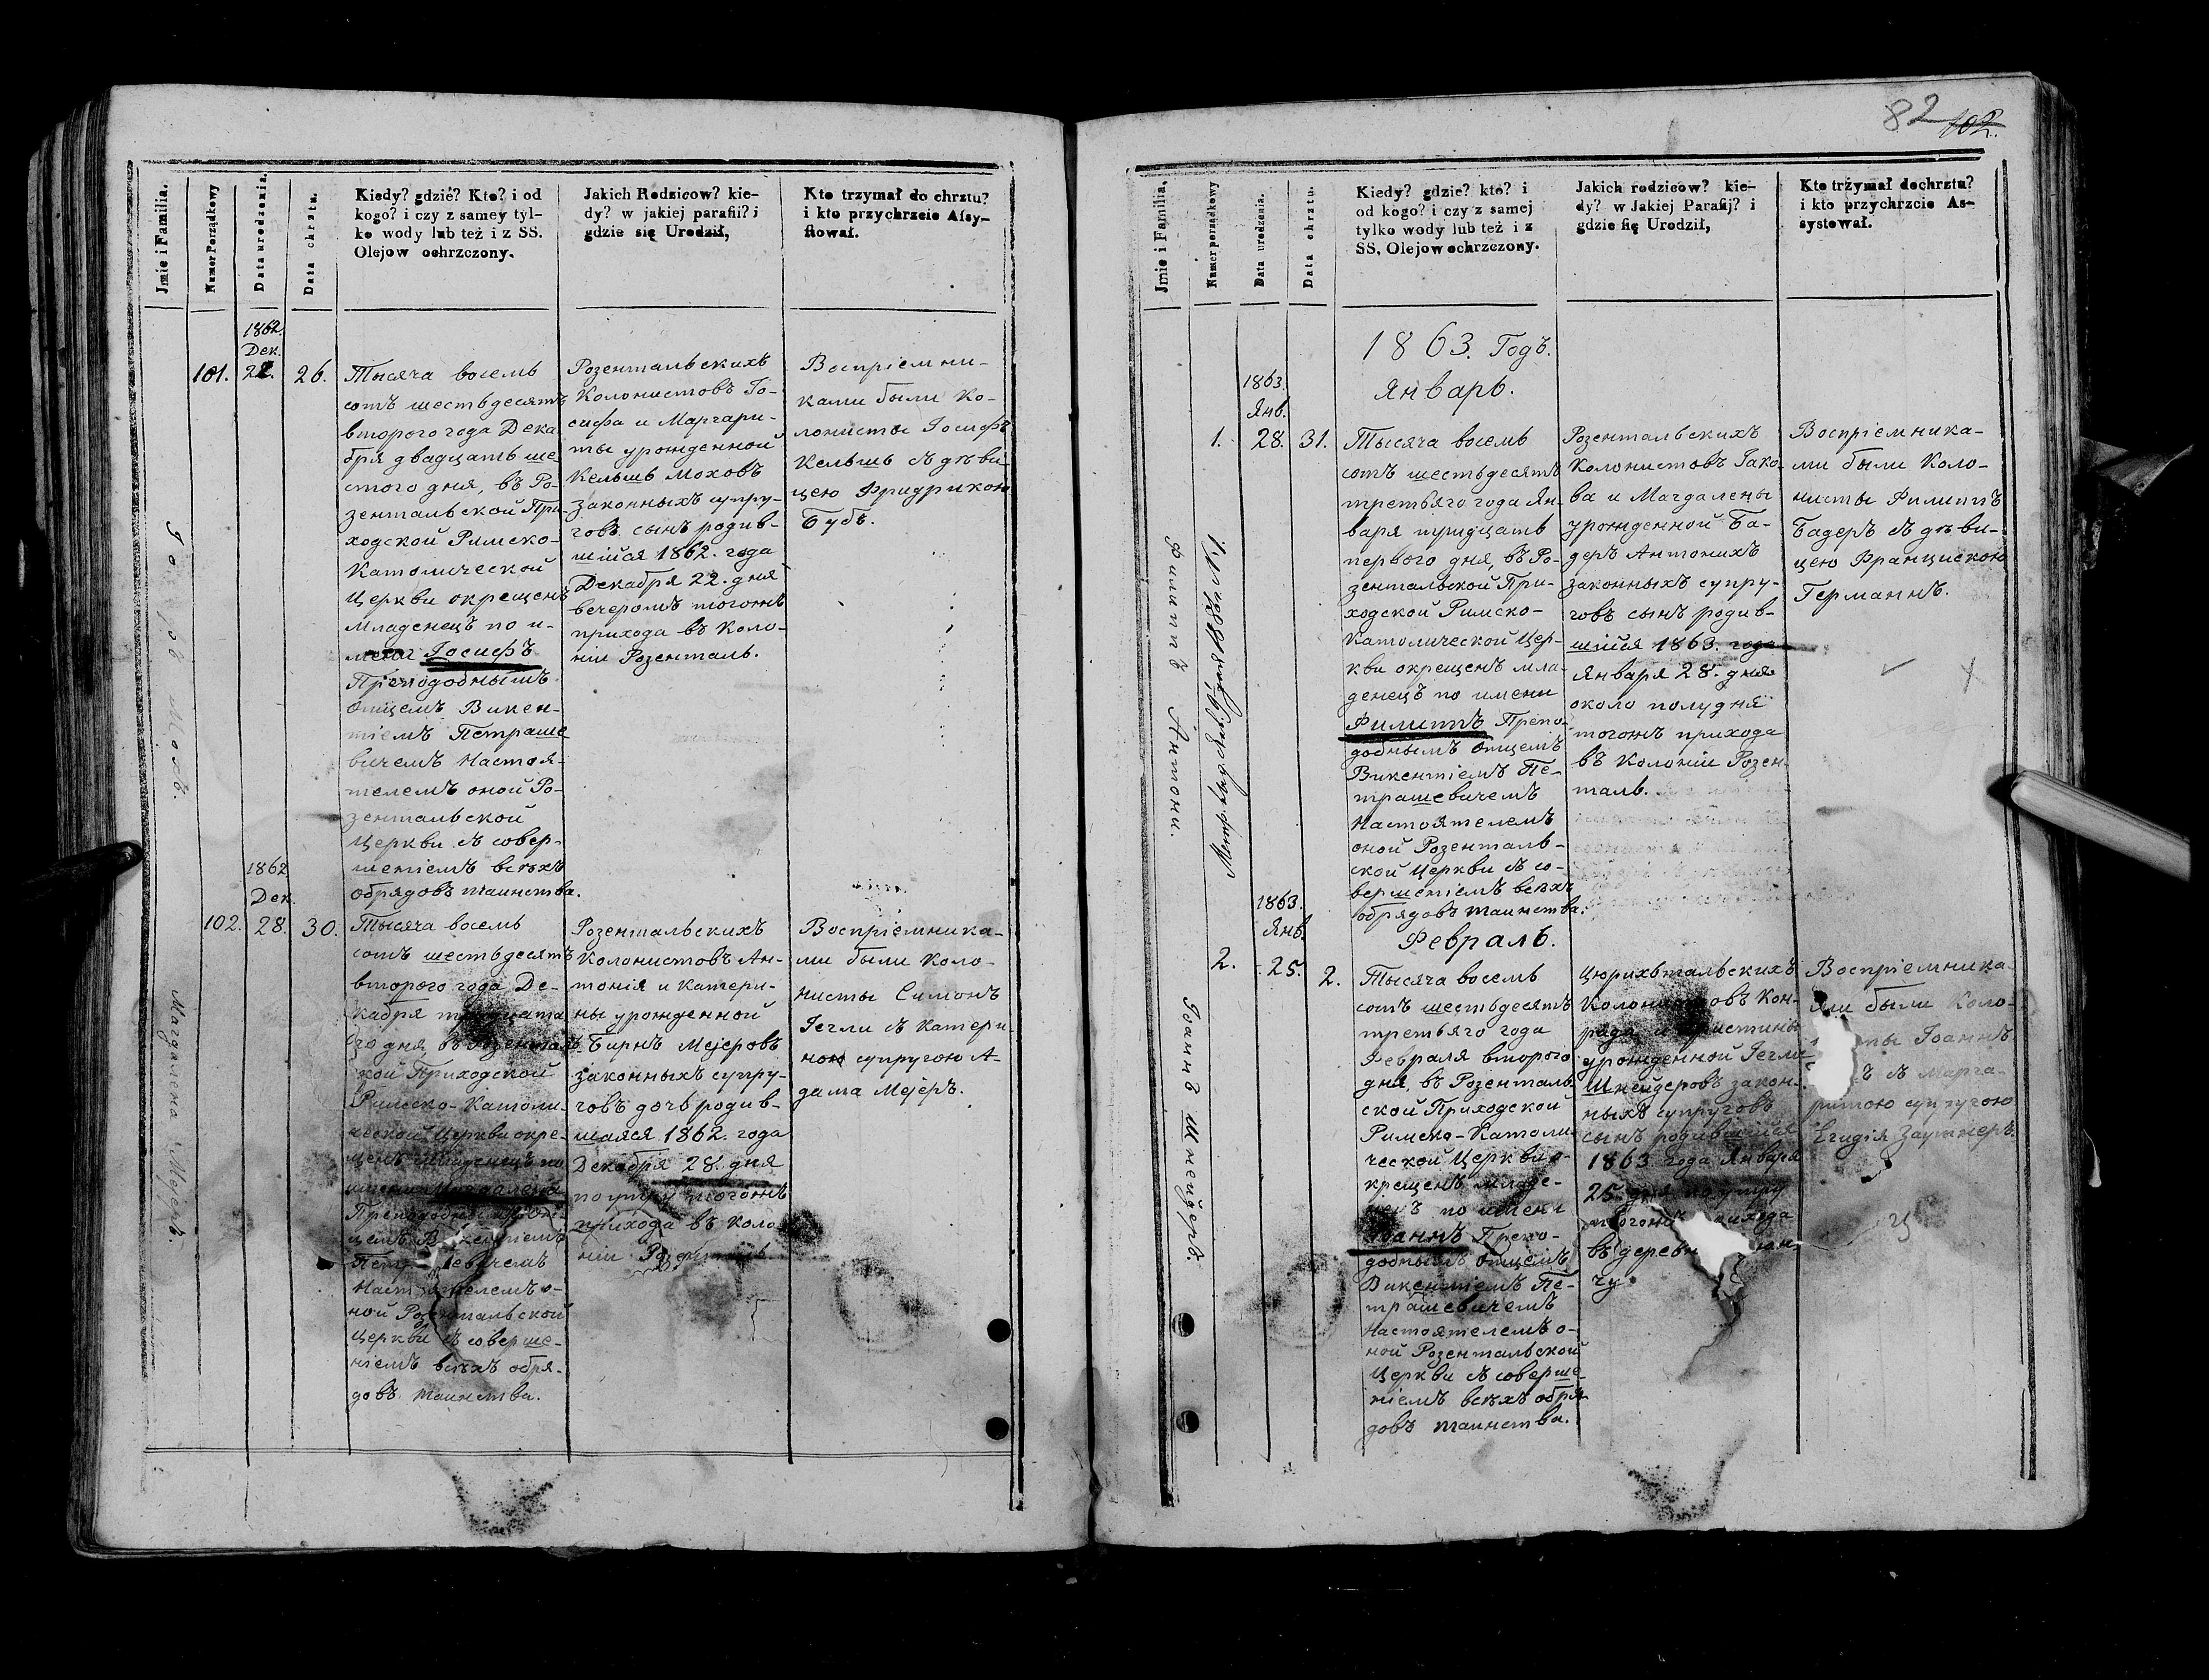 Jmie i Familia.
Numer Porządkowy
Data urodzenia.
Data chrztu.
Kiedy? gdzié? Kto? i od
kogo? i czy z samey tyl-
ko wody lub też i z SS.
Olejow ochrzczony.
Jakich Rodzicow? kie-
dy? w jakiej parafii? i
gdzie się Urodził,
Kto trzymał do chrztu?
i kto przychrzcie Afsy-
stował.
1862.
Дек.
101. 22. 26.
Іосифъ Мохъ.
Тысяча восемь
сотъ шестьдесятъ
второго года Дека
бря двадцать ше
стого дня, въ Ро-
зентальской При-
ходской Римско-
Католической
Церкви окрещенъ
младенецъ по и-
мени Іосифъ
Преподобнымъ
Отцемъ Викен-
тіемъ Петраше
вичемъ Настоя-
телемъ оной Ро-
зентальской
Церкви съ совер-
шеніемъ всѣхъ
обрядовъ таинства.
Розентальскихъ
Колонистовъ Іо-
сифа и Маргари-
ты урожденной
Кельшъ Моховъ
законныхъ супру-
говъ сынъ родив-
шійся 1862. года
Декабря 22. дня
вечеромъ тогожъ
прихода въ Коло-
ніи Розенталь.
Воспріемни-
ками были Ко-
лонисты Іосифъ
Кельшъ съ дѣви-
цею Фридрикою
Бубъ.
1862
Дек.
102. 28. 30.
Магдалена Мејеръ.
Тысяча восемь
сотъ шестьдесятъ
второго года Де-
кабря тридцата
го дня, въ Розенталь
кой Приходской
Римско-Католи-
ческой Церкви окре-
щенъ младенецъ по
имени Магдалена
Преподобнымъ От-
цемъ Викентіемъ
Петр евичемъ
Настоятелемъ о-
ной Розентальской
Церкви съ соверше-
ніемъ всѣхъ обря-
довъ таинства.
Розентальскихъ
Колонистовъ Ан-
тонія и Катери-
ны урожденной
Бирнъ Мејеровъ
законныхъ супру-
говъ дочь родив-
шаяся 1862. года
Декабря 28. дня
по утру тогожъ
прихода въ Коло
ніи Розенталь
Воспріемника-
ми были Коло-
нисты Симонъ
Іегли съ Катери-
ною супругою А-
дама Мејеръ.
82 102.
Jmie i Familia.
Numer porządkowy
Data urodzenia.
Data chrztu.
Kiedy? gdzie? kto? i
od kogo? i czy z samej
tylko wody lub też i z
SS. Olejow ochrzczony.
Jakich rodzicow? kie-
dy? w Jakiej Parafij? i
gdzie się Urodził,
Kto trzymał dochrztu?
i kto przychrzcie As-
systował.
1863. Годъ.
Январь.
1863.
Янв.
1. 28. 31.
Филиппъ Антони.
Тысяча восемь
сотъ шестьдесятъ
третьяго года Ян-
варя тридцать
первого дня, въ Ро-
зентальской При-
ходской Римско-
Католической Цер-
кви окрещенъ мла-
денецъ по имени
Филиппъ Препо-
добнымъ Отцемъ
Викентіемъ Пе-
трашевичемъ
Настоятелемъ
оной Розенталь-
ской Церкви съ со-
вершеніемъ всѣхъ
обрядовъ таинства.
Розентальскихъ
Колонистовъ Іако-
ва и Магдалены
урожденной Ба-
деръ Антонихъ
законныхъ супру-
говъ сынъ родив-
шійся 1863. года
Января 28. дня
около полудня
тогожъ прихода
въ Колоніи Розен-
таль.
Воспріемника-
ми были Коло-
нисты Филиппъ
Бадеръ съ дѣви-
цею Францискою
Германнъ.
1863.
Янв.
Февраль.
2. 25. 2.
Іоаннъ Шнейдеръ.
Тысяча восемь
сотъ шестьдесятъ
третьяго года
Февраля второго
дня, въ Розенталь-
ской Приходской
Римско-Католи-
ческой Церкви о-
крещенъ младе-
нецъ по имени
Іоаннъ Препо-
добнымъ Отцемъ
Викентіемъ Пе-
трашевичемъ
Настоятелемъ о-
ной Розентальской
Церкви съ соверше
ніемъ всѣхъ обря-
довъ таинства.
Цюрихтальскихъ
Колонистовъ Кон-
рада и Христины
урожденной Іегли
Шнейдеровъ закон-
ныхъ супруговъ
сынъ родившійся
1863 года Января
25. дня по утру
тогожъ прихода
въ деревн
чу.
Воспріемника
ми были Коло-
ты Іоаннъ
съ Марга-
ритою супругою
Егидія Заутнеръ.